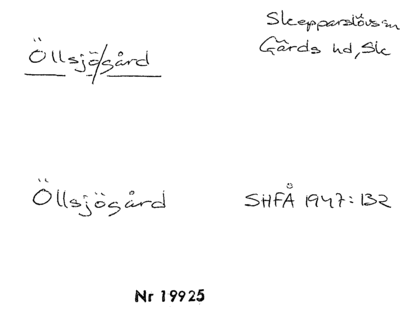 Öllsjögård
Skepparslövs sn
Gärds hd, Sk
Öllsjögård
SHFÅ 1947:132
Nr 19925